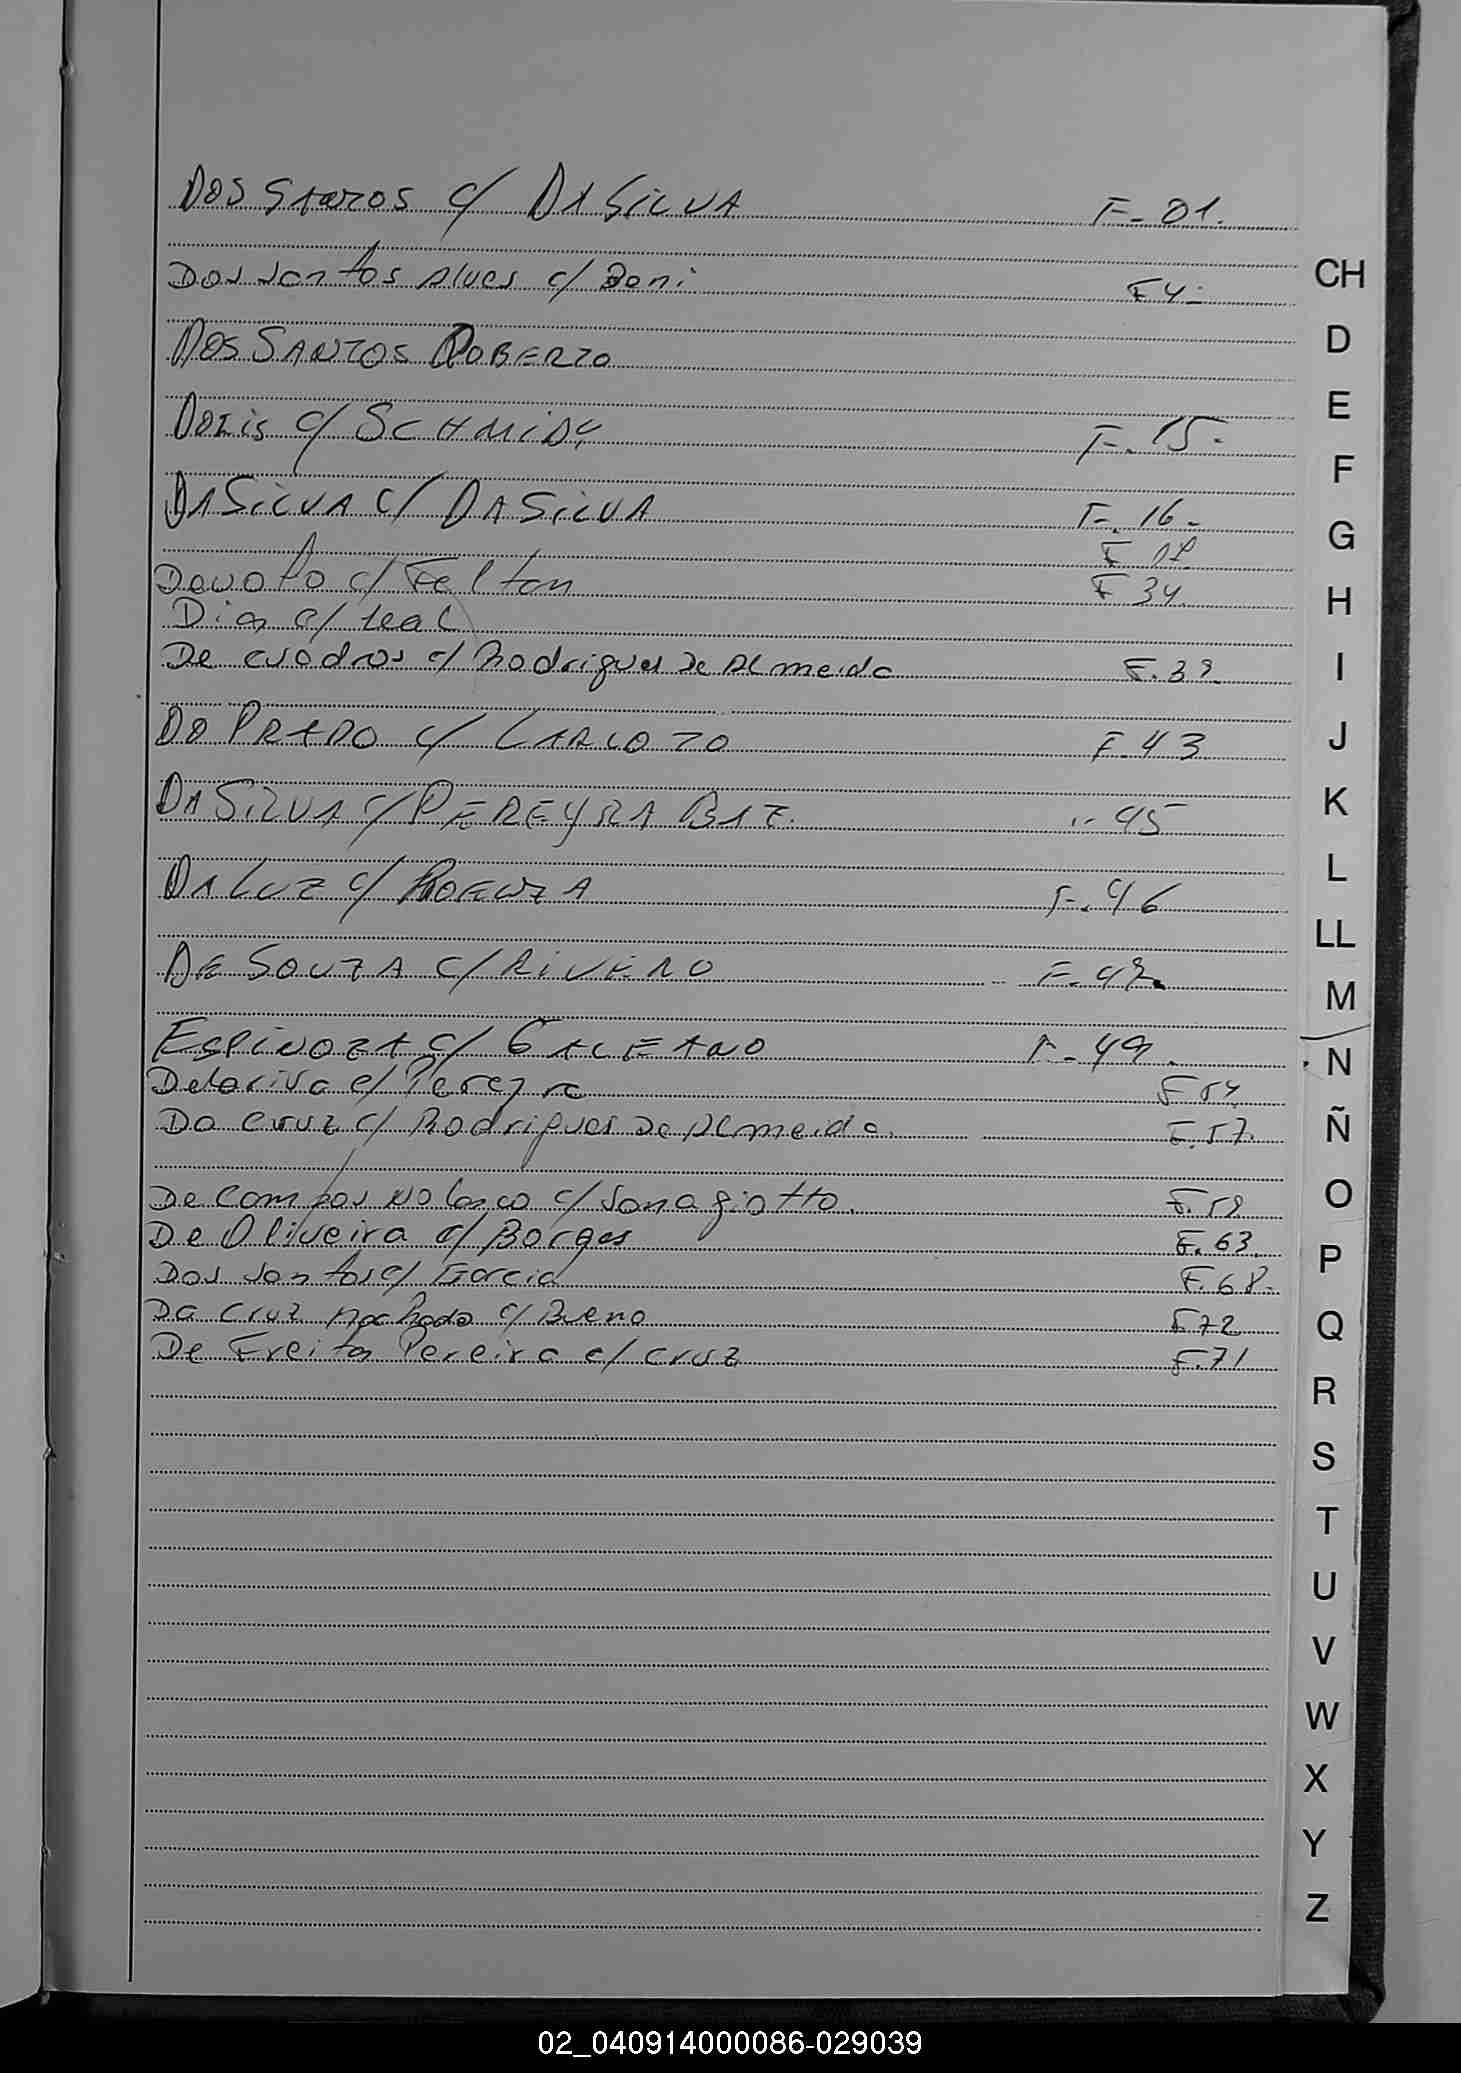 DOS SANTOS c/ DA SILVA F-01.
Dos santos Alves c/ Boni F 4-
DOS SANTOS ROBERTO
c/ SCHMIDT F-15-
DA SILVA c/ DA SILVA F-16-
F 18
Devoto c/ Felton F 34.
Dias c/ Leal
De cuadros c/ Rodrigues De Almeida F.39.
DO PRADO c/ CARDOZO F 43
DA SILVA c/ PEREYRA BAZ. " 45
DA LUZ c/ F-46
DE SOUZA c/ RIVERO F-47.
ESPINOZA c/ GALEANO F-49.
Delariva c/ Pereyra F 54.
Da cruz c/ Rodrigues De Almeida. F.57.
De campos Nolasco c/ Sanagiotto. F.59
De Oliveira c/ Borges F.63.
Dos santos c/ Garcia F.68-
Da cruz Machado c/ Bueno F.72
De Freitas Pereira c/ cruz F.71
CH
D
E
F
G
H
I
J
K
L
LL
M
N
Ñ
O
P
Q
R
S
T
U
V
W
X
Y
Z
02_040914000086-029039